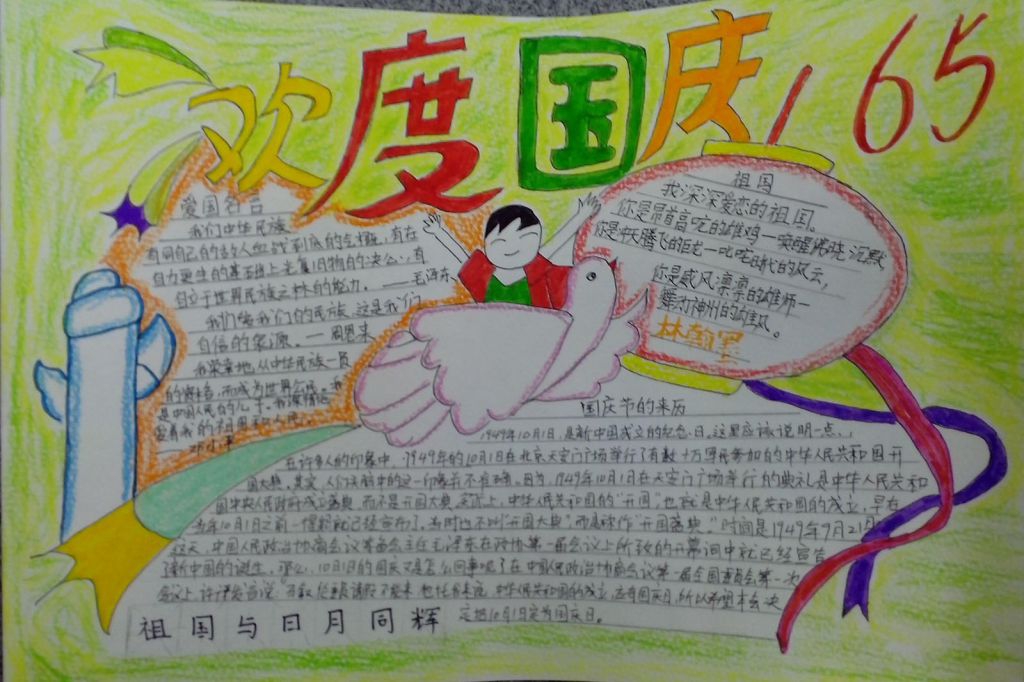 欢度国庆 65
爱国名言
我们中华民族
有同自己的敌人血战到底的气概，有在
自力更生的基础上光复旧物的决心，有
自立于世界民族之林的能力。——毛泽东
我们爱我们的民族，这是我们
自信的泉源。——周恩来
我荣幸地从中华民族一员
的资格，而成为世界公民。我
是中国人民的儿子。我深情地
爱着我的祖国和人民。
邓小平
祖国
我深深爱恋的祖国。
你是昂首高吭的雄鸡—唤醒拂晓沉默
你是冲天腾飞的巨龙—叱咤时代的风云，
你是威风凛凛的雄师—
舞动神州的雄风。
国庆节的来历
1949年10月1日，是新中国成立的纪念日。这里应该说明一点，
在许多人的印象中，1949年的10月1日在北京天安门广场举行了有数十万军民参加的中华人民共和国开
国大典。其实，人们头脑中的这一印象并不准确。因为，1949年10月1日在天安门广场举行的典礼是中华人民共和
国中央人民政府成立盛典，而不是开国大典。实际上，中华人民共和国的“开国”，也就是中华人民共和国的成立，早在
当年10月1日之前一个星期就已经宣布了。当时也不叫“开国大典”，而是称作“开国盛典。”时间是1949年9月21日
这天，中国人民政治协商会议筹备会主任毛泽东在政协第一届会议上所致的开幕词中就已经宣告
了新中国的诞生。那么，10月1日的国庆又是怎么回事呢？在中国人民政治协商会议第一届全国委员会第一次
会议上，许广平
定把10月1日定为国庆日。
祖国与日月同辉